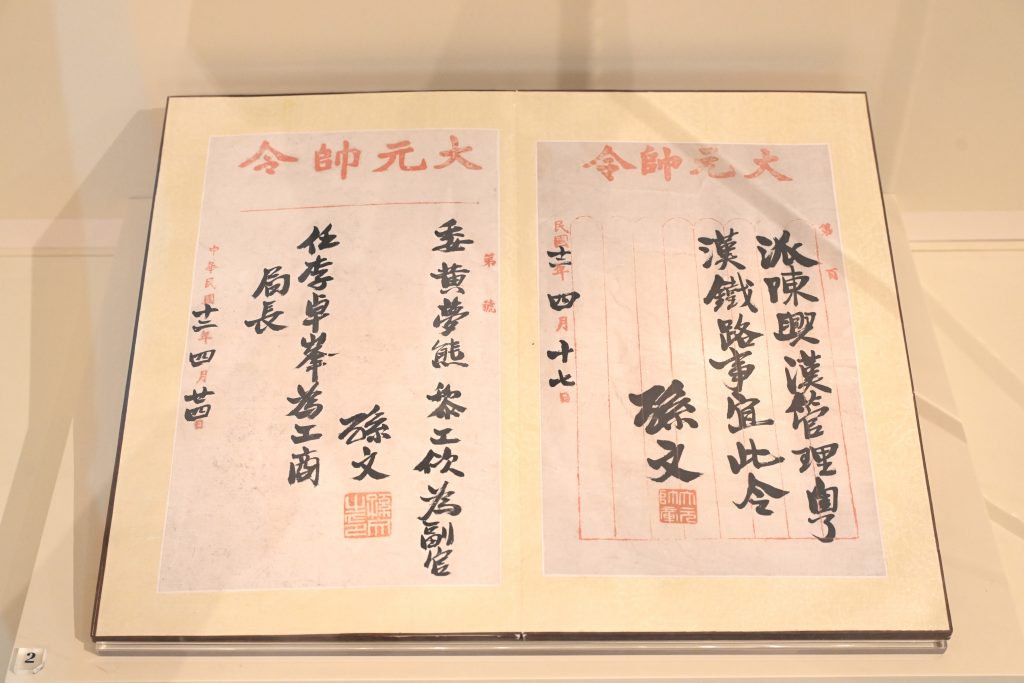 大元帥令
第 百
派陳興漢管理粵
漢鐵路事宜此令
孫文
大元帥章
民國十二年四月十七日
大元帥令
第 號
委黃夢熊 黎工佽為副官
孫文
孫文之印
任李卓峯為工商
局長
中華民國十二年四月廿四日
2